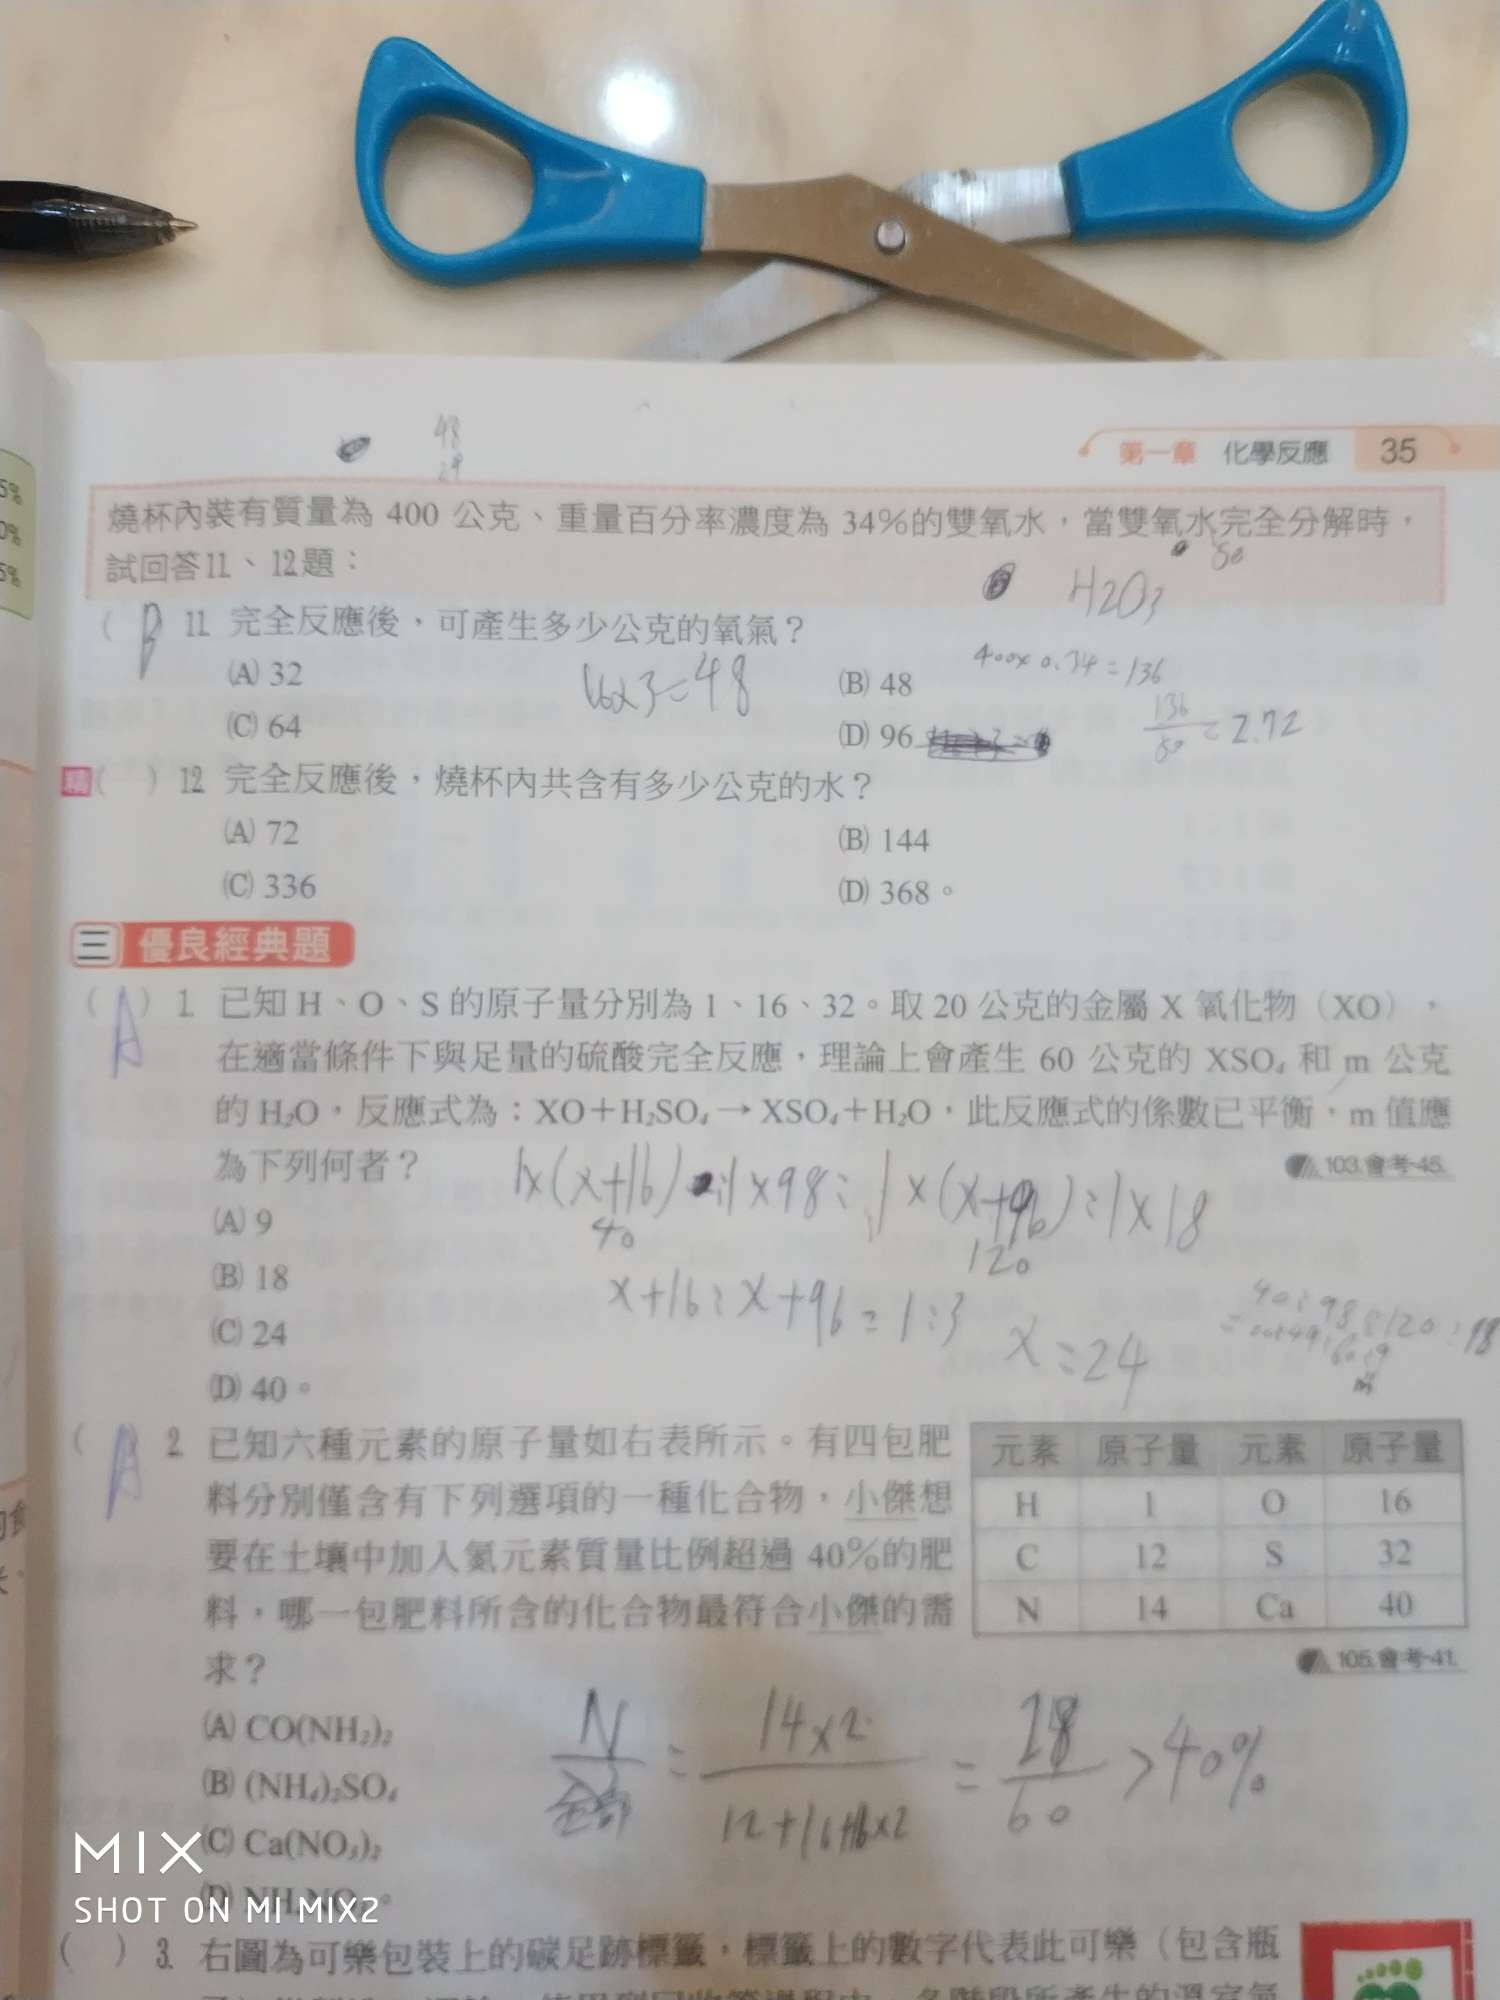 5%
0%
5%
48
29
第一章 化學反應 35
燒杯內裝有質量為 400 公克、重量百分率濃度為 34%的雙氧水，當雙氧水完全分解時，
試回答11、12題：
H2O3
50
( B ) 11. 完全反應後，可產生多少公克的氧氣？
(A) 32
16x3=48
(B) 48
400x0.34=136
(C) 64
(D) 96
136/50=2.72
精 ( ) 12. 完全反應後，燒杯內共含有多少公克的水？
(A) 72
(B) 144
(C) 336
(D) 368。
三 優良經典題
( A ) 1. 已知 H、O、S 的原子量分別為 1、16、32。取 20 公克的金屬 X 氧化物（XO），
在適當條件下與足量的硫酸完全反應，理論上會產生 60 公克的 XSO₄ 和 m 公克
的 H₂O，反應式為：XO＋H₂SO₄→XSO₄＋H₂O，此反應式的係數已平衡，m 值應
為下列何者？
103.會考-45.
1x(x+16):1x98:1x(x+96):1x18
40
120
(A) 9
(B) 18
x+16:x+96=1:3
x=24
40:98:120:18
(C) 24
(D) 40。
( A ) 2. 已知六種元素的原子量如右表所示。有四包肥
料分別僅含有下列選項的一種化合物，小傑想
要在土壤中加入氮元素質量比例超過 40%的肥
料，哪一包肥料所含的化合物最符合小傑的需
求？
元素 原子量 元素 原子量
H 1 O 16
C 12 S 32
N 14 Ca 40
105.會考-41.
(A) CO(NH₂)₂
(B) (NH₄)₂SO₄
(C) Ca(NO₃)₂
(D) NH₄NO₃。
N/全部=14x2/12+16+16x2=28/60>40%
MIX
SHOT ON MI MIX2
( ) 3. 右圖為可樂包裝上的碳足跡標籤，標籤上的數字代表此可樂（包含瓶